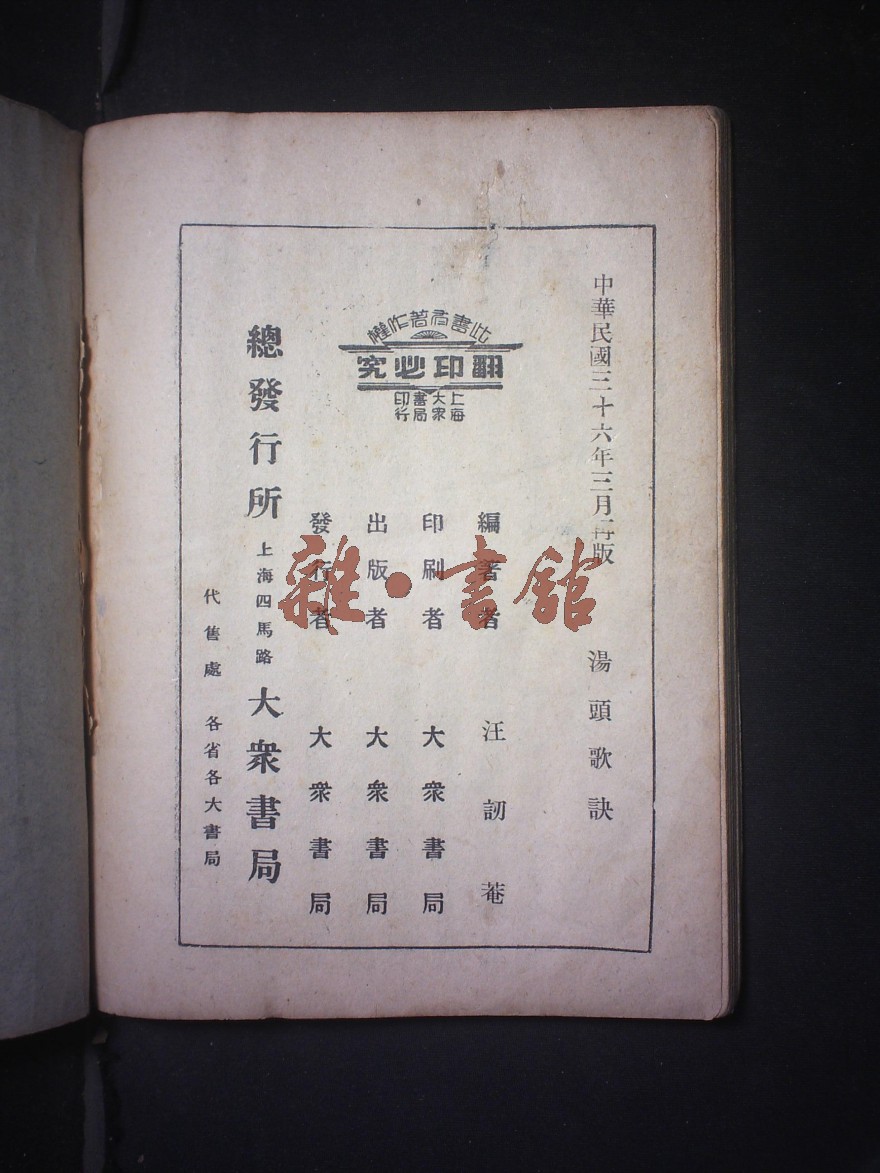 中華民國三十六年三月再版
湯頭歌訣
編著者 汪訒菴
印刷者 大衆書局
出版者 大衆書局
發行者 大衆書局
此書有著作權
翻印必究
上海
大衆
書局
印行
總發行所 上海四馬路 大衆書局
代售處 各省各大書局
雜·書館